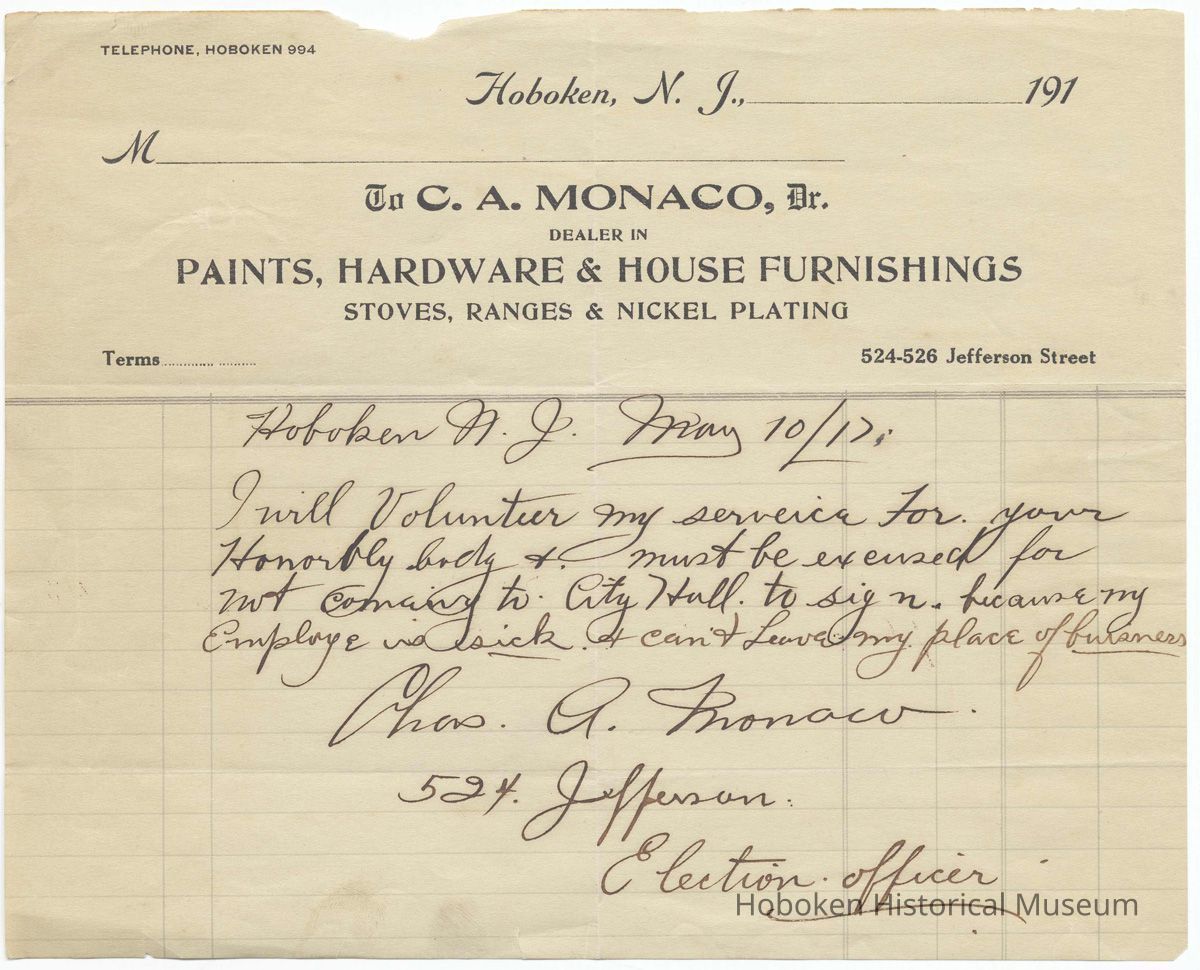 TELEPHONE, HOBOKEN 994
Hoboken, N. J., 191
M
To C. A. MONACO, Dr.
DEALER IN
PAINTS, HARDWARE & HOUSE FURNISHINGS
STOVES, RANGES & NICKEL PLATING
Terms
524-526 Jefferson Street
Hoboken N. J. May 10/17.
I will Volunteer my serveice For. your
Honorbly body &. must be excused for
not comaing to. City Hall. to sign. because my
Employe is sick. & can't Leave my place of buisness
Chas. A. Monaco.
524. Jefferson.
Election. officer
Hoboken Historical Museum